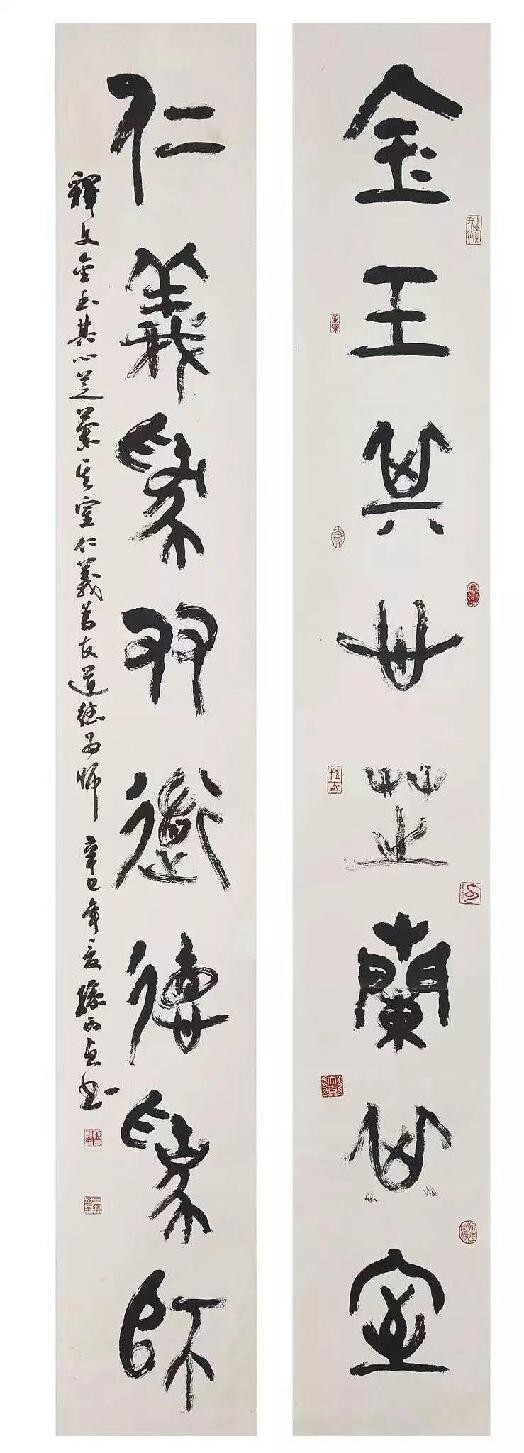 金玉其心芝蘭其室
仁義為友道德為師
釋文金玉其心芝蘭其室仁義為友道德為師 辛巳年夏